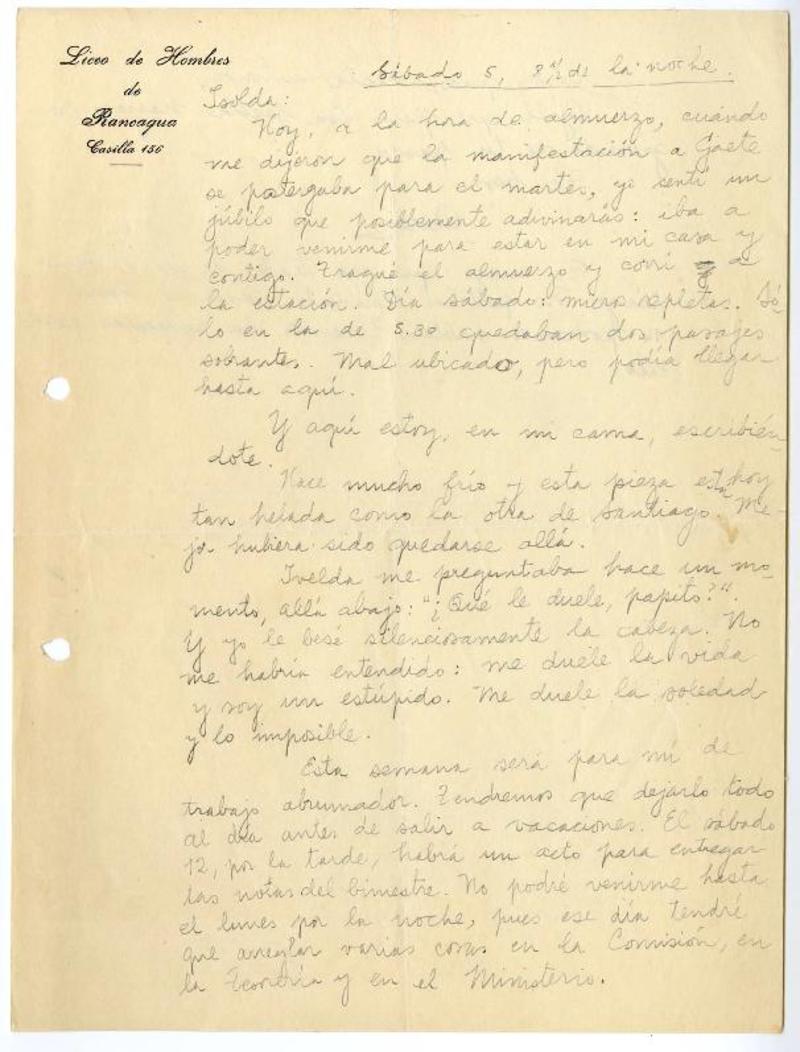 Liceo de Hombres
de
Rancagua
Casilla 156
Sábado 5, 8 1/2 de la noche.
Isolda:
Hoy, a la hora de almuerzo, cuándo
me dijeron que la manifestación a Gaete
se postergaba para el martes, yo sentí un
júbilo que posiblemente adivinarás: iba a
poder venirme para estar en mi casa y
contigo. Tragué el almuerzo y corrí a
la estación. Día sábado: micros repletas. Só-
lo en la de 5.30 quedaban dos pasajes
sobrantes. Mal ubicado, pero podía llegar
hasta aquí.
Y aquí estoy, en mi cama, escribién-
dote.
Hace mucho frío y esta pieza está hoy
tan helada como la otra de Santiago. Me-
jor hubiera sido quedarse allá.
Ivelda me preguntaba hace un mo-
mento, allá abajo: "¿Qué le duele, papito?".
Y yo le besé silenciosamente la cabeza. No
me habría entendido: me duele la vida
y soy un estúpido. Me duele la soledad
y lo imposible.
Esta semana será para mí de
trabajo abrumador. Tendremos que dejarlo todo
al día antes de salir a vacaciones. El sábado
12, por la tarde, habrá un acto para entregar
las notas del bimestre. No podré venirme hasta
el lunes por la noche, pues ese día tendré
que arreglar varias cosas en la Comisión, en
la Tesorería y en el Ministerio.